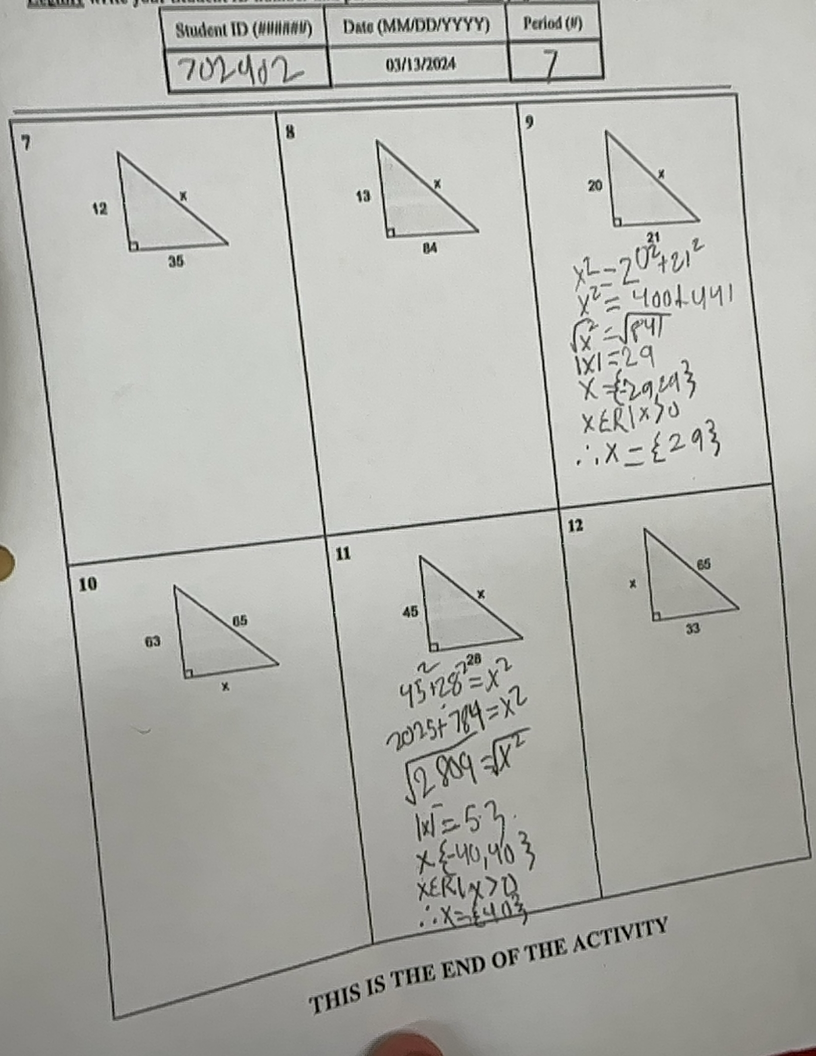 Student ID (######) Date (MM/DD/YYYY) Period (#)
702402 03/13/2024 7
7
12
x
35
8
13
x
84
9
20
x
21
x²=20²+21²
x²=400+441
√x²=√841
|x|=29
x={-29,29}
x∈R|x>0
∴x={29}
10
63
65
x
11
45
x
28
45²+28²=x²
2025+784=x²
√2809=√x²
|x|=53.
x{-40,40}
x∈R|x>0
∴x={40}
12
x
65
33
THIS IS THE END OF THE ACTIVITY